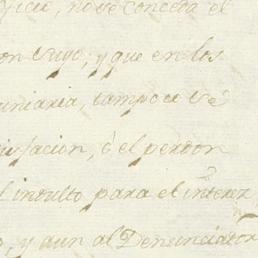 ficio, no se conceda el
on suyo; y que en los
uniaria, tampoco se
isfacion, ó el perdon
l indulto para el interez
o, y aun al Denunciador